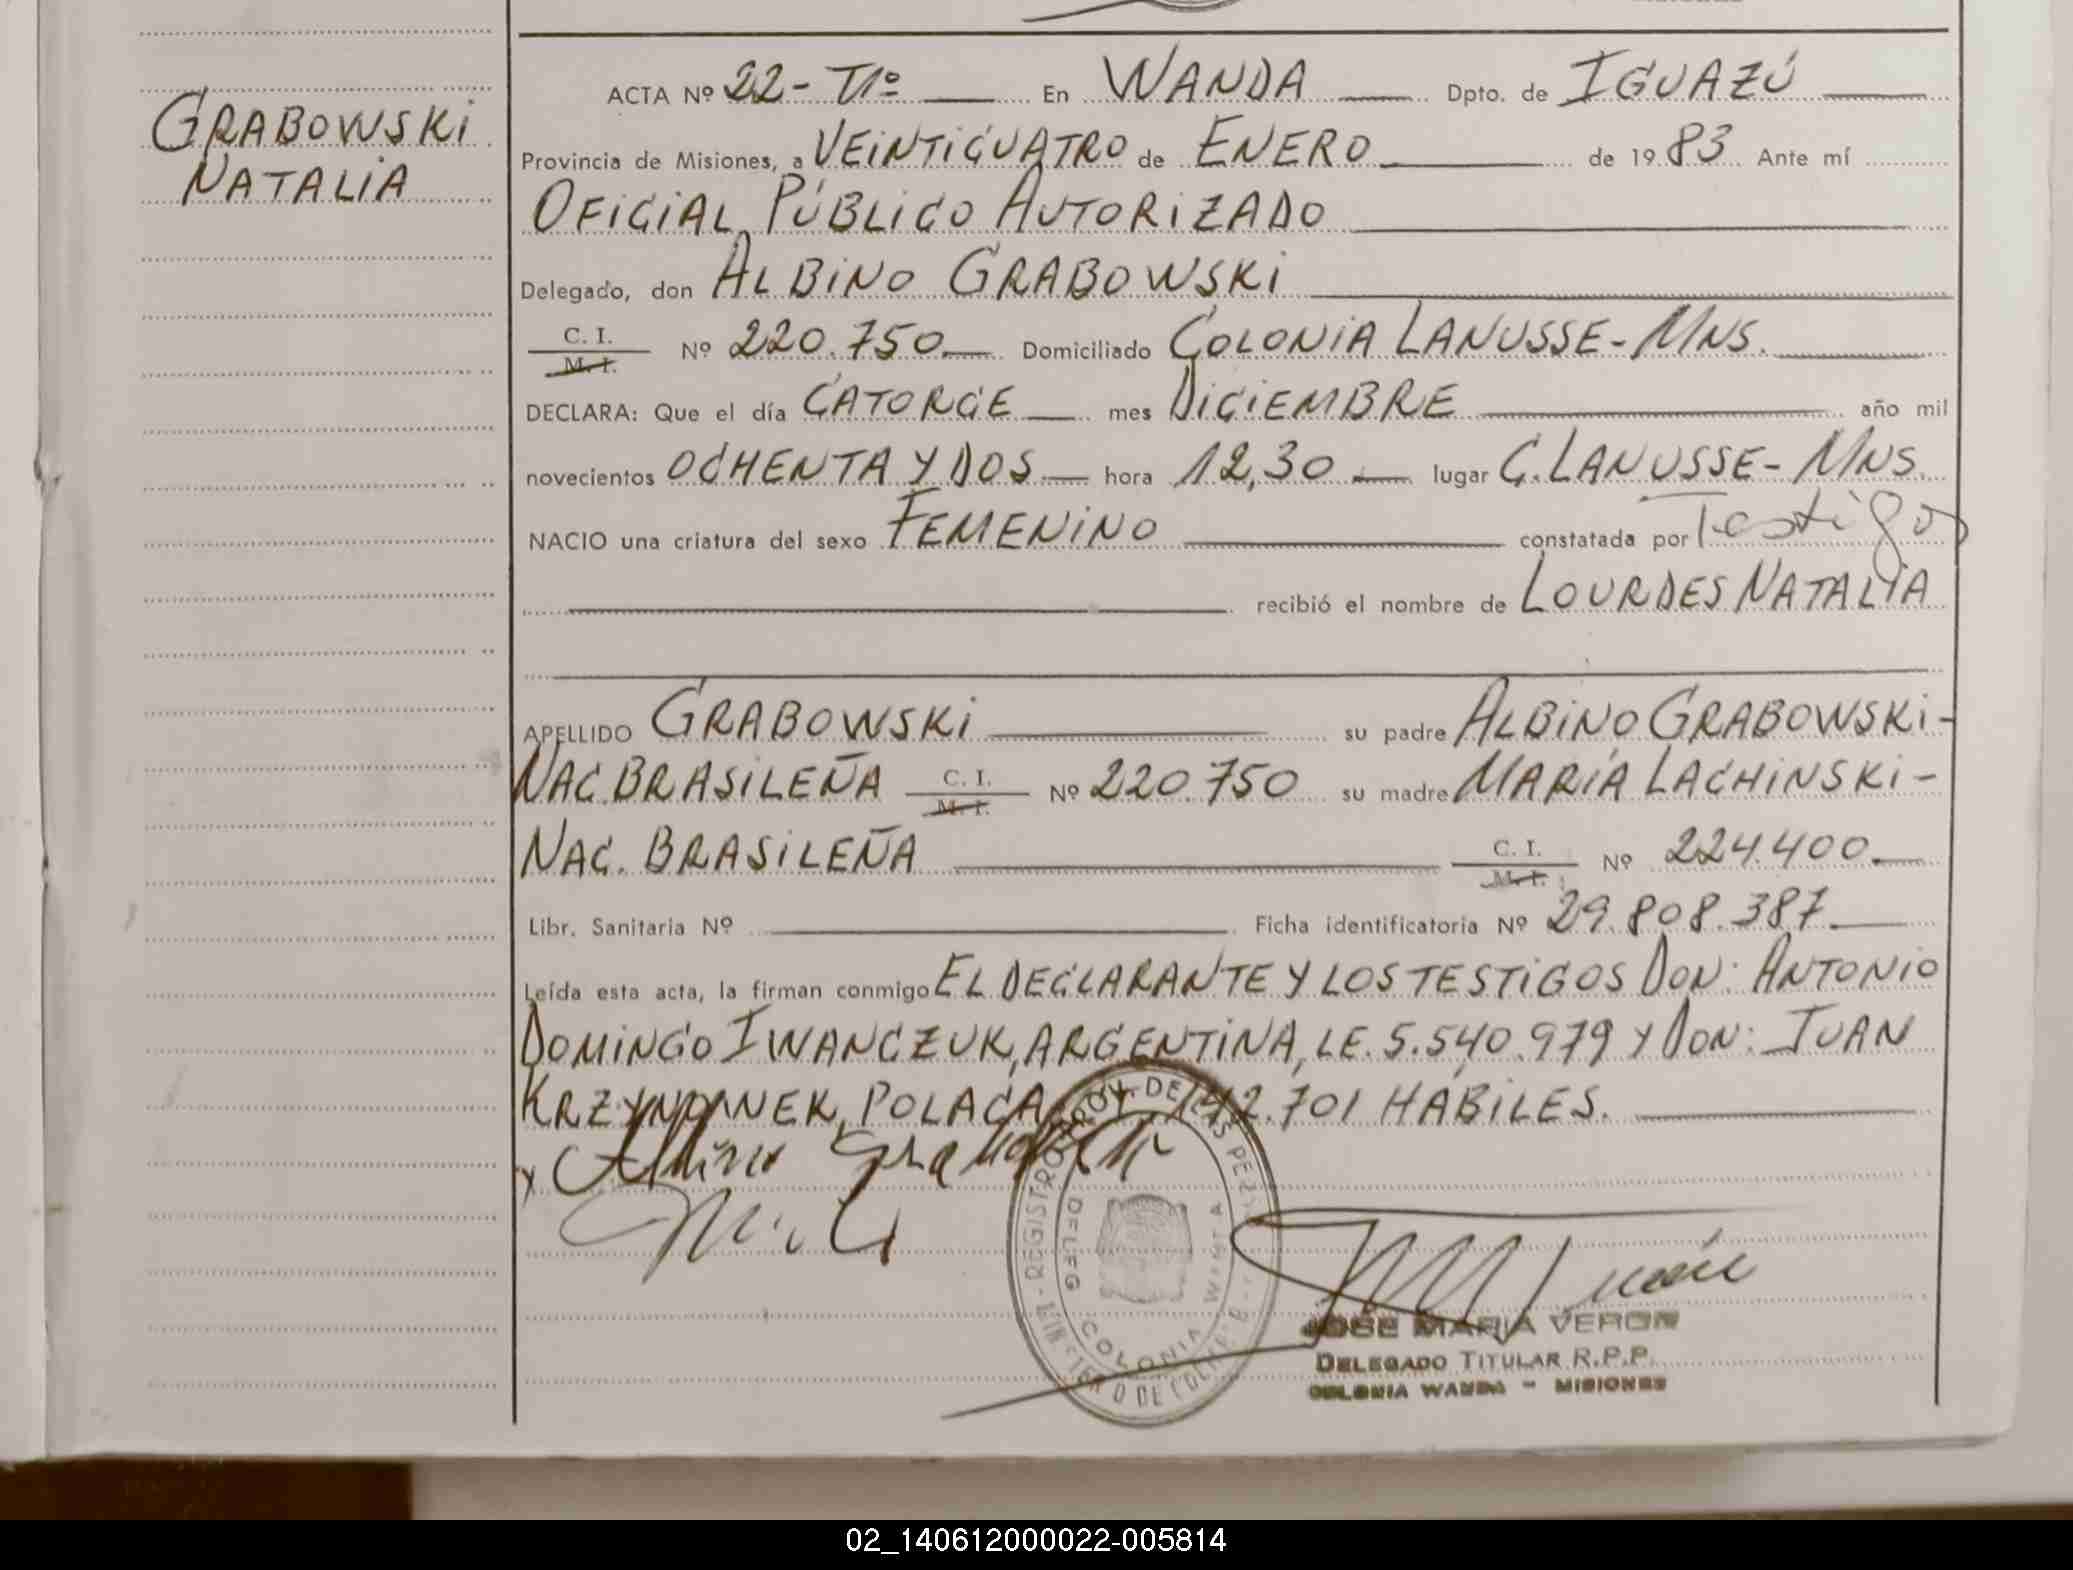 GRABOWSKI
NATALIA
ACTA Nº 22-Tº1º En WANDA Dpto. de IGUAZÚ
Provincia de Misiones, a VEINTICUATRO de ENERO de 1983 Ante mí
OFICIAL PÚBLICO AUTORIZADO
Delegado, don ALBINO GRABOWSKI
C. I.
M. I. Nº 220.750 Domiciliado COLONIA LANUSSE-MNS.
DECLARA: Que el día CATORCE mes DICIEMBRE año mil
novecientos OCHENTA Y DOS hora 12,30 lugar C. LANUSSE-MNS.
NACIO una criatura del sexo FEMENINO constatada por Testigos
recibió el nombre de LOURDES NATALIA
APELLIDO GRABOWSKI su padre ALBINO GRABOWSKI-
NAC. BRASILEÑA C. I. M. I. Nº 220.750 su madre MARÍA LACHINSKI-
NAC. BRASILEÑA C. I. M. I. Nº 224.400.
Libr. Sanitaria Nº Ficha identificatoria Nº 29.808.387
Leída esta acta, la firman conmigo EL DECLARANTE Y LOS TESTIGOS DON: ANTONIO
DOMINGO IWANCZUK, ARGENTINA, L.E. 5.540.979 Y DON: JUAN
POLACA 142.701 HABILES.
Albino Grabowski
COLONIA WANDA
JOSE MARIA VERON
DELEGADO TITULAR R.P.P.
COLONIA WANDA - MISIONES
02_140612000022-005814